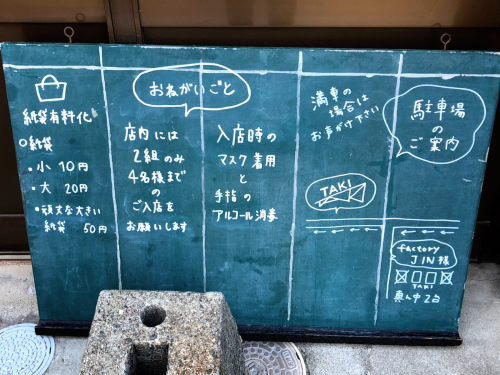 紙袋有料化
○紙袋
・小 10円
・大 20円
・頑丈な大きい
紙袋 50円
おねがいごと
店内には
2組のみ
4名様まで
の
ご入店を
お願いします
入店時の
マスク着用
と
手指の
アルコール消毒
満車の
場合は
お声がけ下さい
TAKI
駐車場
の
ご案内
factory
JIN様
TAKI
真ん中2台